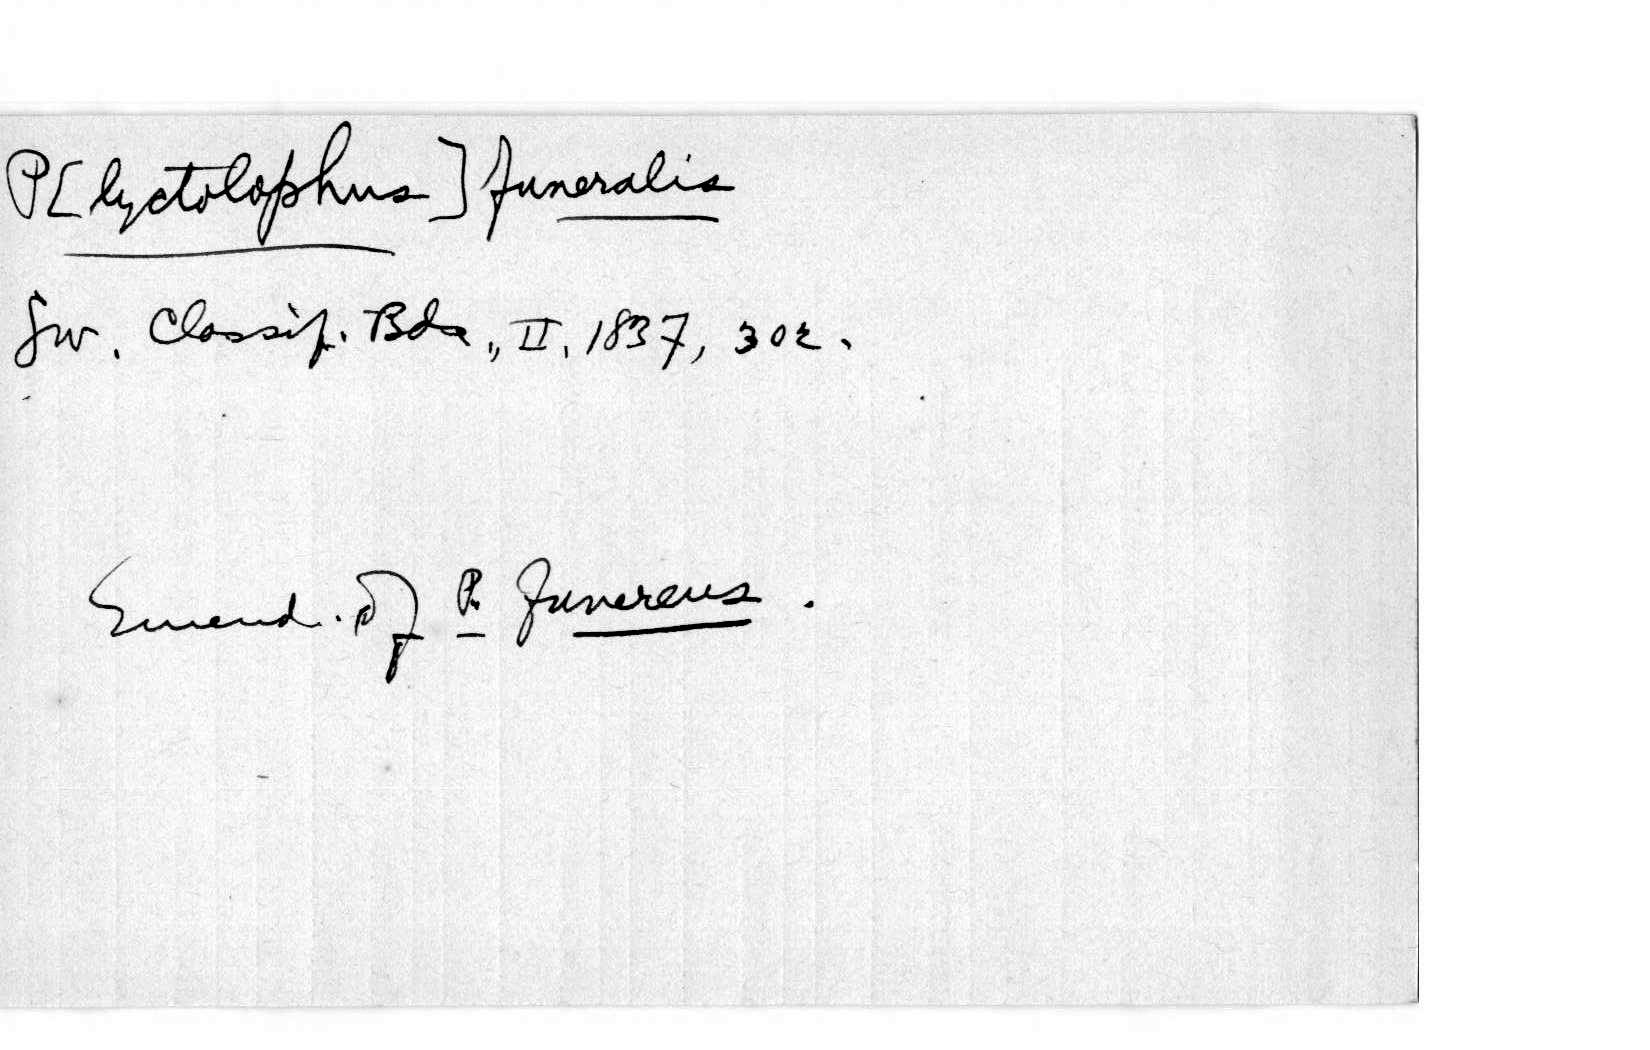 P[lyctolophus] funeralis
Sw. Classif. Bds., II, 1837, 302.
Emend. of P. funereus.